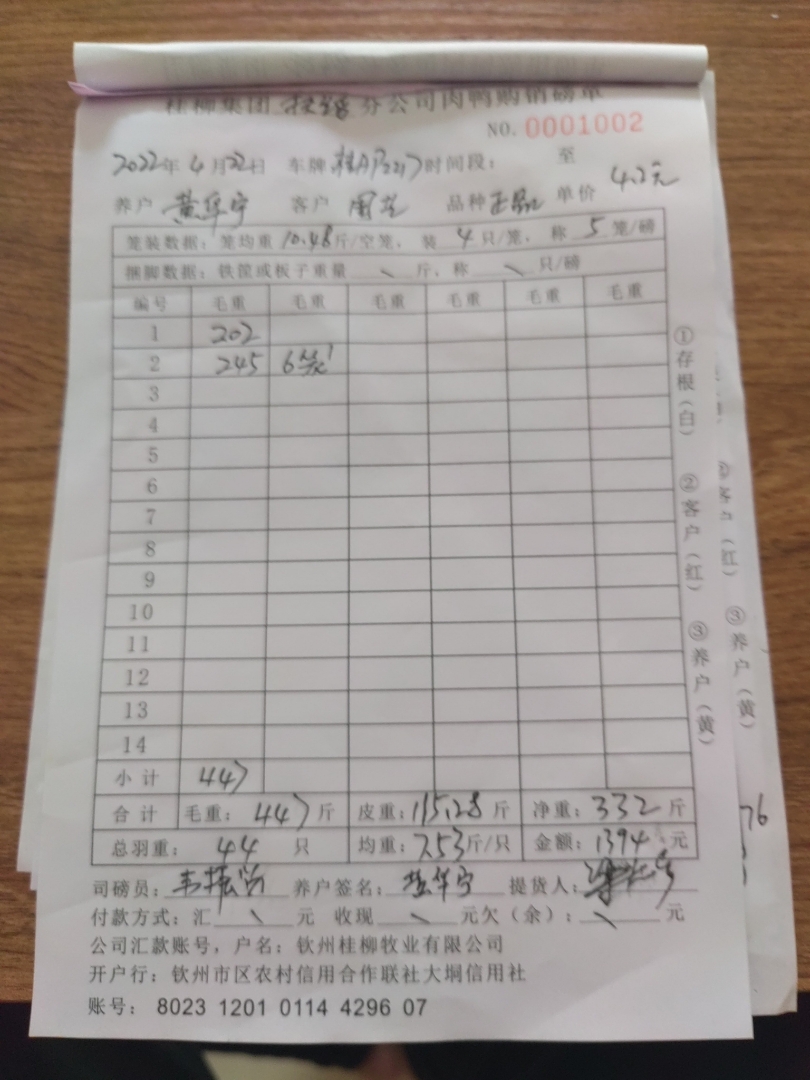 桂柳集团 分公司肉鸭购销磅单
NO. 0001002
2022年 4月22日 车牌 时间段： 至
养户 黄华宁 客户 周芝 品种 正品 单价 4.2元
笼装数据：笼均重 10.48斤/空笼，装 4 只/笼，称 5 笼/磅
捆脚数据：铁筐或板子重量 \ 斤，称 \ 只/磅
编号 毛重 毛重 毛重 毛重 毛重 毛重
1 202
2 245 6笼
3
4
5
6
7
8
9
10
11
12
13
14
小计 447
合计 毛重：447斤 皮重：115.28斤 净重：332斤
总羽重：44 只 均重：7.53斤/只 金额：1394元
司磅员： 养户签名：黄华宁 提货人：
付款方式：汇 \ 元 收现 \ 元欠（余）：\ 元
公司汇款账号，户名：钦州桂柳牧业有限公司
开户行：钦州市区农村信用合作联社大垌信用社
账号： 8023 1201 0114 4296 07
①存根（白） ②客户（红） ③养户（黄）
②客户（红） ③养户（黄）
76